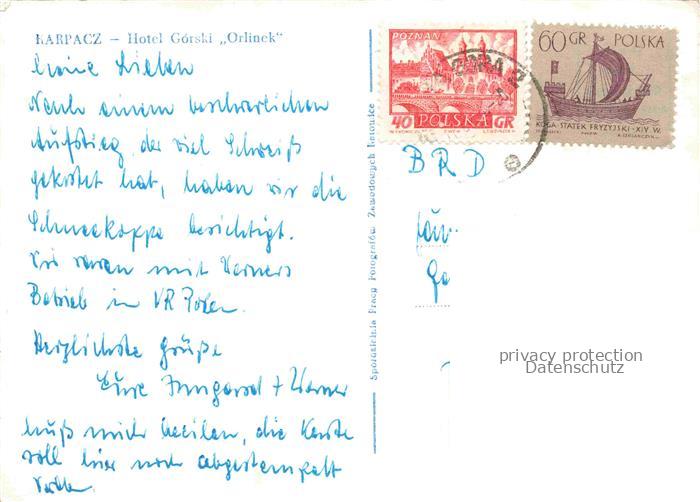 KARPACZ — Hotel Górski „Orlinek"
Meine Lieben
Nach einem beschwerlichen
Aufstieg, der viel Schweiß
gekostet hat, haben wir die
Schneekoppe besichtigt.
Wir waren mit Werners
Betrieb in VR Polen.
Herzlichste Grüße
Eure Irmgard + Werner
Muß mich beeilen, die Karte
soll hier noch abgestempelt
werden
Spółdzielnia Pracy Fotografów Zawodowych Katowice
POZNAŃ
40 POLSKA GR
60 GR POLSKA
KOGA-STATEK FRYZYJSKI-XIV W.
BRD
privacy protection
Datenschutz